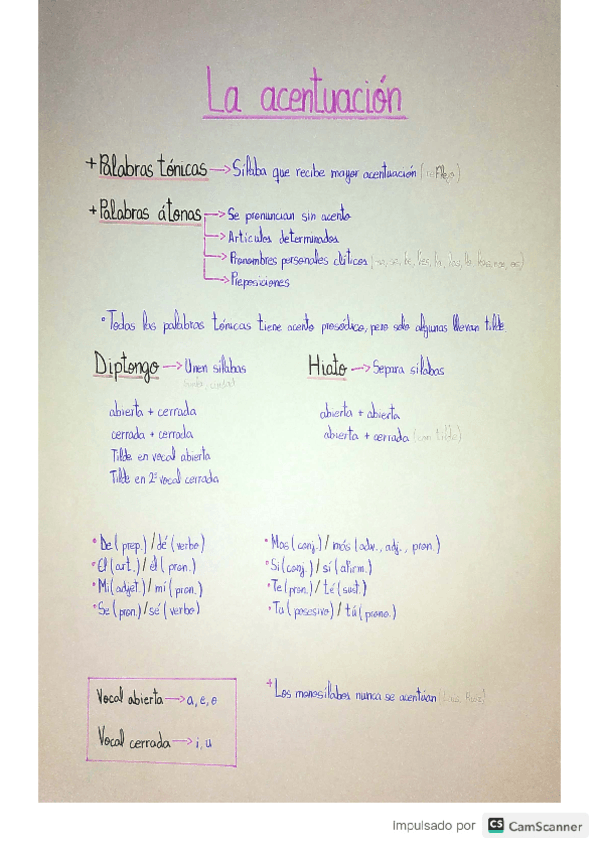 La acentuación
+ Palabras tónicas → Sílaba que recibe mayor acentuación
+ Palabras átonas → Se pronuncian sin acento
→ Artículos determinados
→ Pronombres personales clíticos
→ Preposiciones
• Todas las palabras tónicas tiene acento prosódico, pero solo algunas llevan tilde.
Diptongo → Unen sílabas
abierta + cerrada
cerrada + cerrada
Tilde en vocal abierta
Tilde en 2ª vocal cerrada
Hiato → Separa sílabas
abierta + abierta
abierta + cerrada (con tilde)
• De (prep.) / dé (verbo)
• El (art.) / él (pron.)
• Mi (adjet.) / mí (pron.)
• Se (pron.) / sé (verbo)
• Mas (conj.) / más (adv., adj., pron.)
• Si (conj.) / sí (afirm.)
• Te (pron.) / té (sust.)
• Tu (posesivo) / tú (prono.)
Vocal abierta → a, e, o
Vocal cerrada → i, u
+ Los monosílabos nunca se acentúan
Impulsado por CS CamScanner